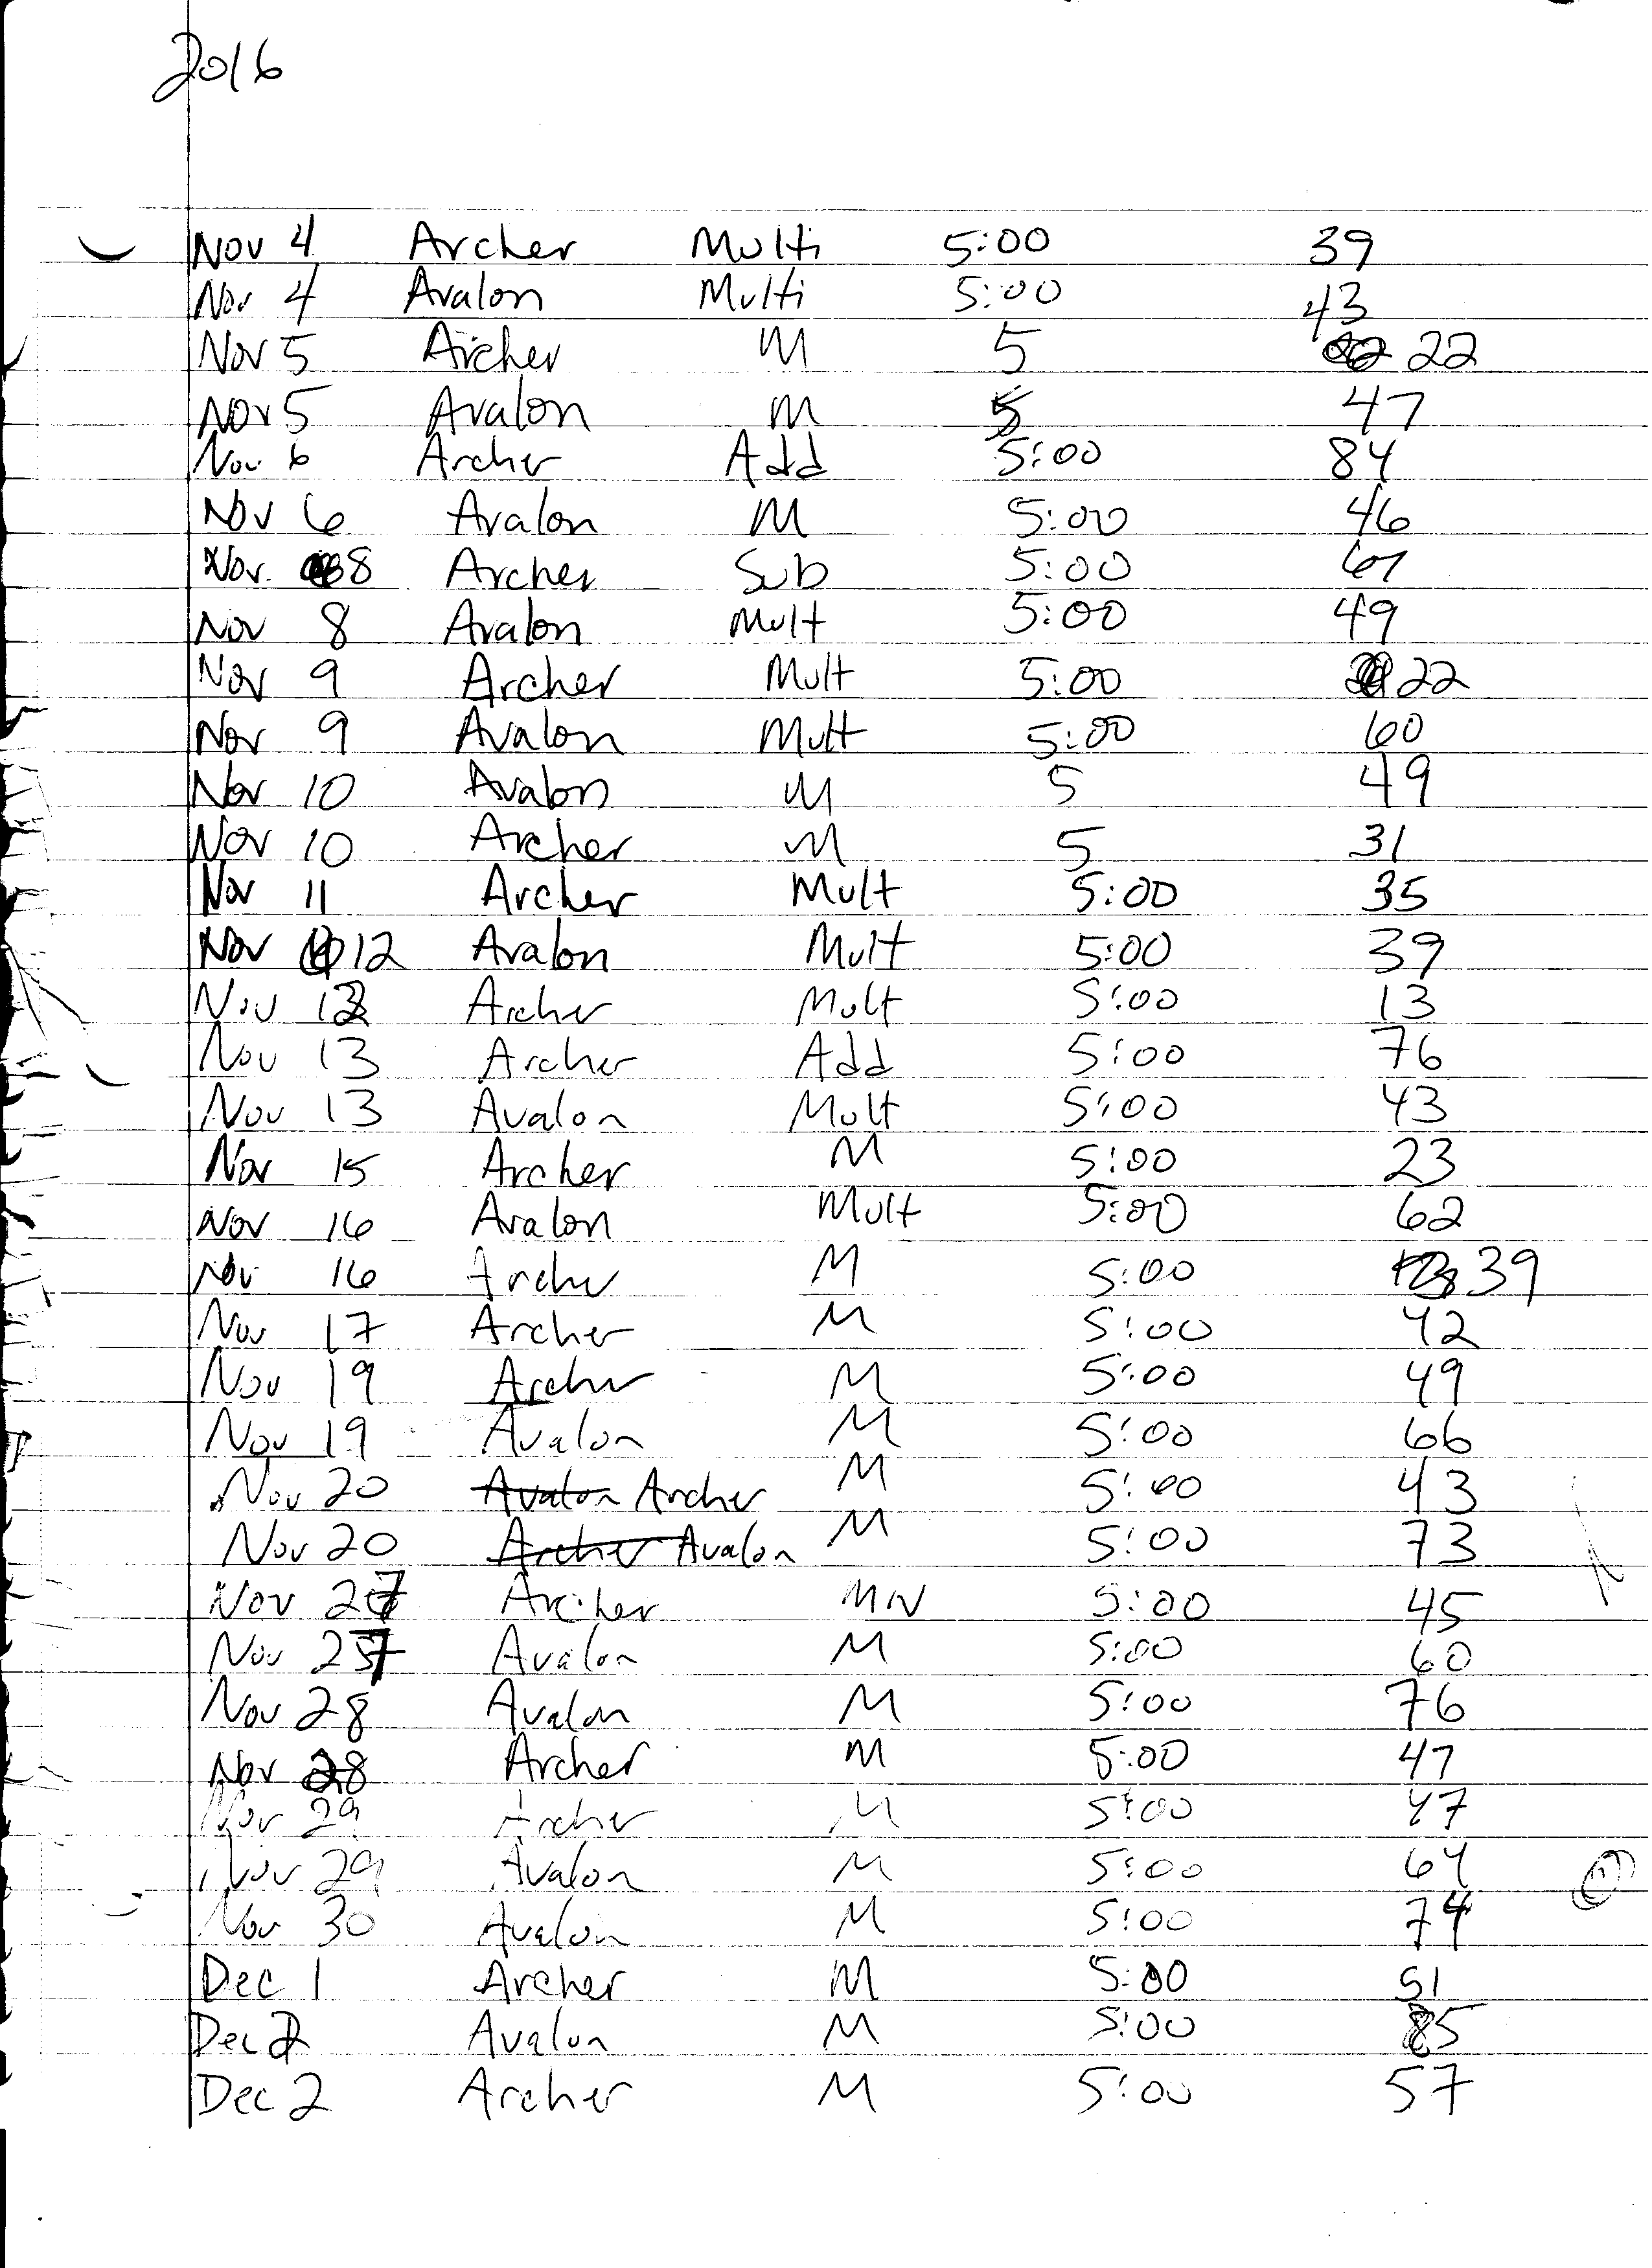 2016
Nov 4 Archer Multi 5:00 39
Nov 4 Avalon Multi 5:00 43
Nov 5 Archer M 5 22
Nov 5 Avalon M 5 47
Nov 6 Archer Add 5:00 84
Nov 6 Avalon M 5:00 46
Nov 8 Archer Sub 5:00
Nov 8 Avalon Mult 5:00 49
Nov 9 Archer Mult 5:00 22
Nov 9 Avalon Mult 5:00 60
Nov 10 Avalon M 5 49
Nov 10 Archer M 5 31
Nov 11 Archer Mult 5:00 35
Nov 12 Avalon Mult 5:00 39
Nov 12 Archer Mult 5:00 13
Nov 13 Archer Add 5:00 76
Nov 13 Avalon Mult 5:00 43
Nov 15 Archer M 5:00 23
Nov 16 Avalon Mult 5:00 62
Nov 16 Archer M 5:00 39
Nov 17 Archer M 5:00 42
Nov 19 Archer M 5:00 49
Nov 19 Avalon M 5:00 66
Nov 20 Avalon Archer M 5:00 43
Nov 20 Archer Avalon M 5:00 73
Nov 27 Archer 5:00 45
Nov 27 Avalon M 5:00 60
Nov 28 Avalon M 5:00 76
Nov 28 Archer M 5:00 47
Nov 29 Archer M 5:00 47
Nov 29 Avalon M 5:00 64
Nov 30 Avalon M 5:00 74
Dec 1 Archer M 5:00 51
Dec 2 Avalon M 5:00 85
Dec 2 Archer M 5:00 57